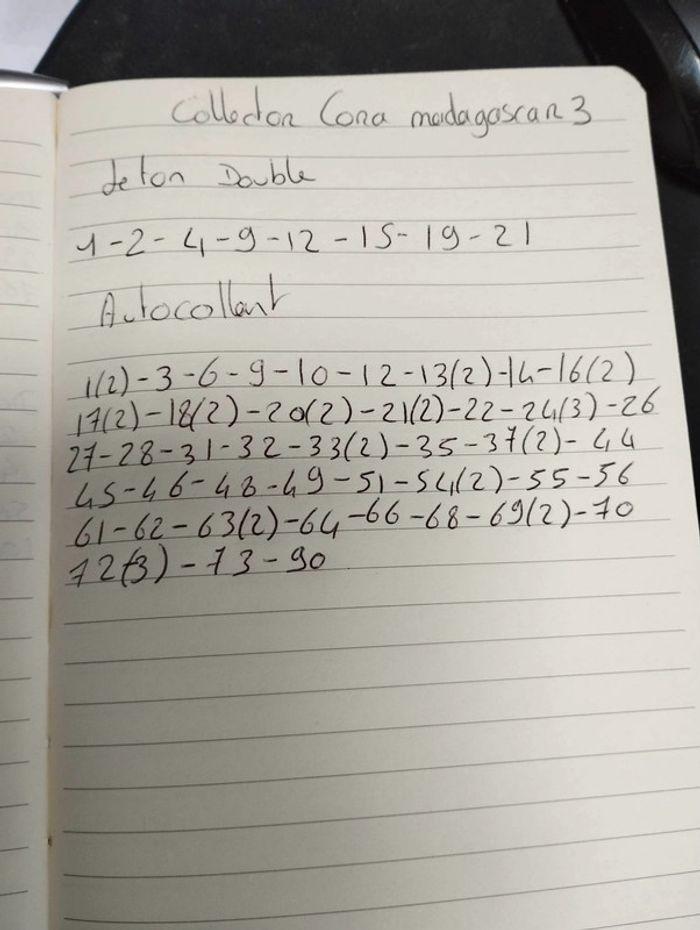 Collector Cora madagascar 3
Jeton Double
1-2-4-9-12-15-19-21
Autocollant
1(2)-3-6-9-10-12-13(2)-14-16(2)
17(2)-18(2)-20(2)-21(2)-22-24(3)-26
27-28-31-32-33(2)-35-37(2)-44
45-46-48-49-51-54(2)-55-56
61-62-63(2)-64-66-68-69(2)-70
72(3)-73-90